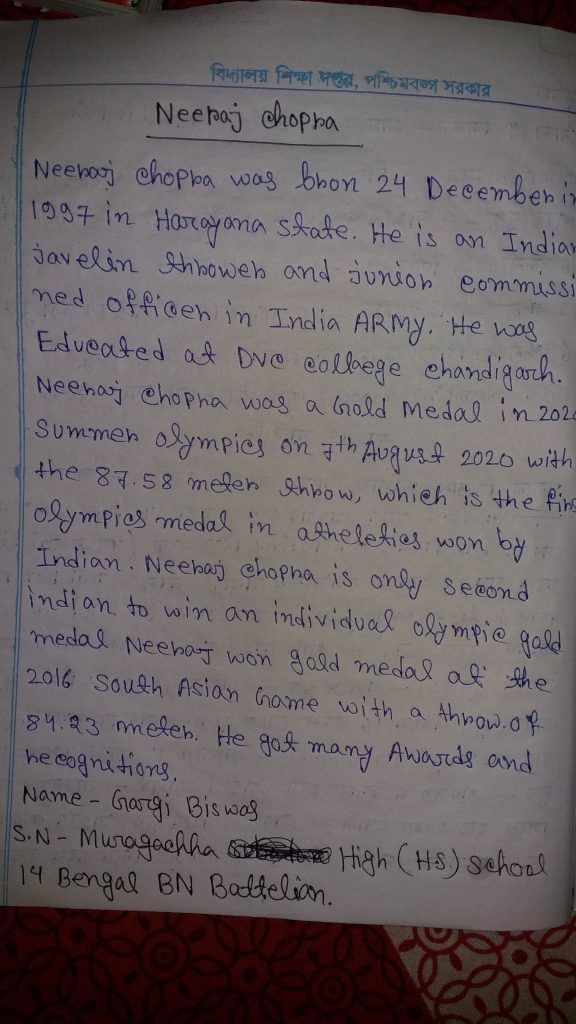 বিদ্যালয় শিক্ষা দপ্তর, পশ্চিমবঙ্গ সরকার
Neeraj Chopra
Neeraj Chopra was bron 24 December in
1997 in Harayana state. He is an Indian
javelin thrower and junior commissi
ned officer in India ARMy. He was
Educated at DVC collaege chandigarh.
Neeraj Chopra was a Gold Medal in 202
Summer olympics on 7th August 2020 with
the 87.58 meter throw, which is the firs
olympics medal in atheletics won by
Indian. Neeraj chopra is only second
indian to win an individual olympic gold
medal Neeraj won gold medal at the
2016 South Asian Game with a throw of
84.23 meter. He got many Awards and
recognitions.
Name - Gargi Biswas
S.N - Muragachha High (HS) School
14 Bengal BN Battelian.